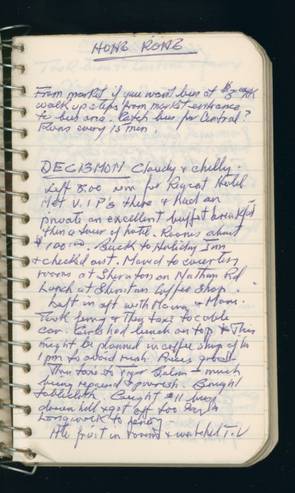 HONG KONG
From market if you want bus at $3 HK
walk up steps from market entrance
to bus area. Catch bus for Central?
Runs every 15 min.
DEC 13 MON Cloudy & chilly.
Left 8:00 for Regent Hotel
Met V.I.P's there & had an
private an excellent buffet breakfast
then a tour of hotel. Rooms about
$100.00. Back to Holiday Inn
& checked out. Moved to
rooms at Sheraton on Nathan Rd
Lunch at Sheraton Coffee Shop.
Left in aft with &
Took ferry & then taxi to cable
car. Girls had lunch on top & This
might be planned in coffee shop
1 pm to avoid rush. Prices
Then taxi to Tiger Balm - much
being repaired &. Bought
tablecloth. Caught #11 bus
down hill & got off too
Long walk to ferry.
Ate fruit in rooms & watched T.V